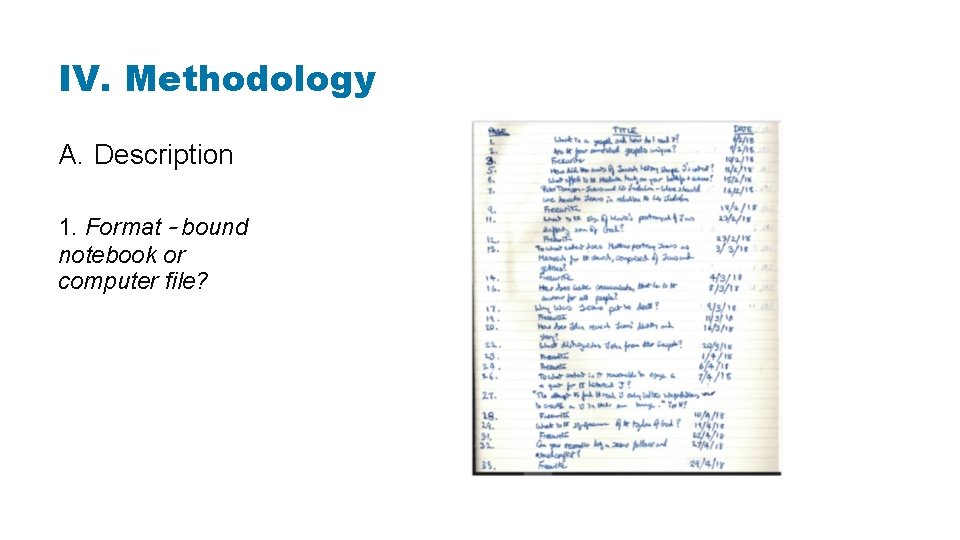 IV. Methodology
A. Description
1. Format - bound
notebook or
computer file?
PAGE TITLE DATE
1. What is a gospel and how do I read it? 6/2/18
2. Are the four canonical gospels unique? 9/2/18
3. Freewrite 10/2/18
5. How did the of Jewish history shape J's ? 12/2/18
6. What on your and ? 15/2/18
7. Peter Tomson - Jesus and his Judaism - Where should 16/2/18
we locate Jesus in relation to his Judaism
9. Freewrite 19/2/18
11. What is the of Mark's portrayal of Jesus 22/2/18
son of God?
12. Freewrite 23/2/18
13. To what extent does Matthew portray Jesus as 3/3/18
Messiah for the church, composed of Jews and
gentiles?
14. Freewrite 4/3/18
16. How does Luke communicate that he is the 8/3/18
saviour for all people?
17. Why was Jesus put to death? 9/3/18
19. Freewrite 11/3/18
20. How does John reveal Jesus' identity and 16/3/18
glory?
22. What distinguishes John from other Gospels? 20/3/18
23. Freewrite 1/4/18
24. Freewrite 6/4/18
26. To what extent is it reasonable to engage 7/4/18
a quest for the historical J?
27. "The attempt to find the real J only
is create a J in their own image."
28. Freewrite 10/4/18
29. What is the significance of the Kingdom of God? 19/4/18
31. Freewrite 22/4/18
32. Can you be a Jesus follower and 27/4/18
?
33. Freewrite 29/4/18